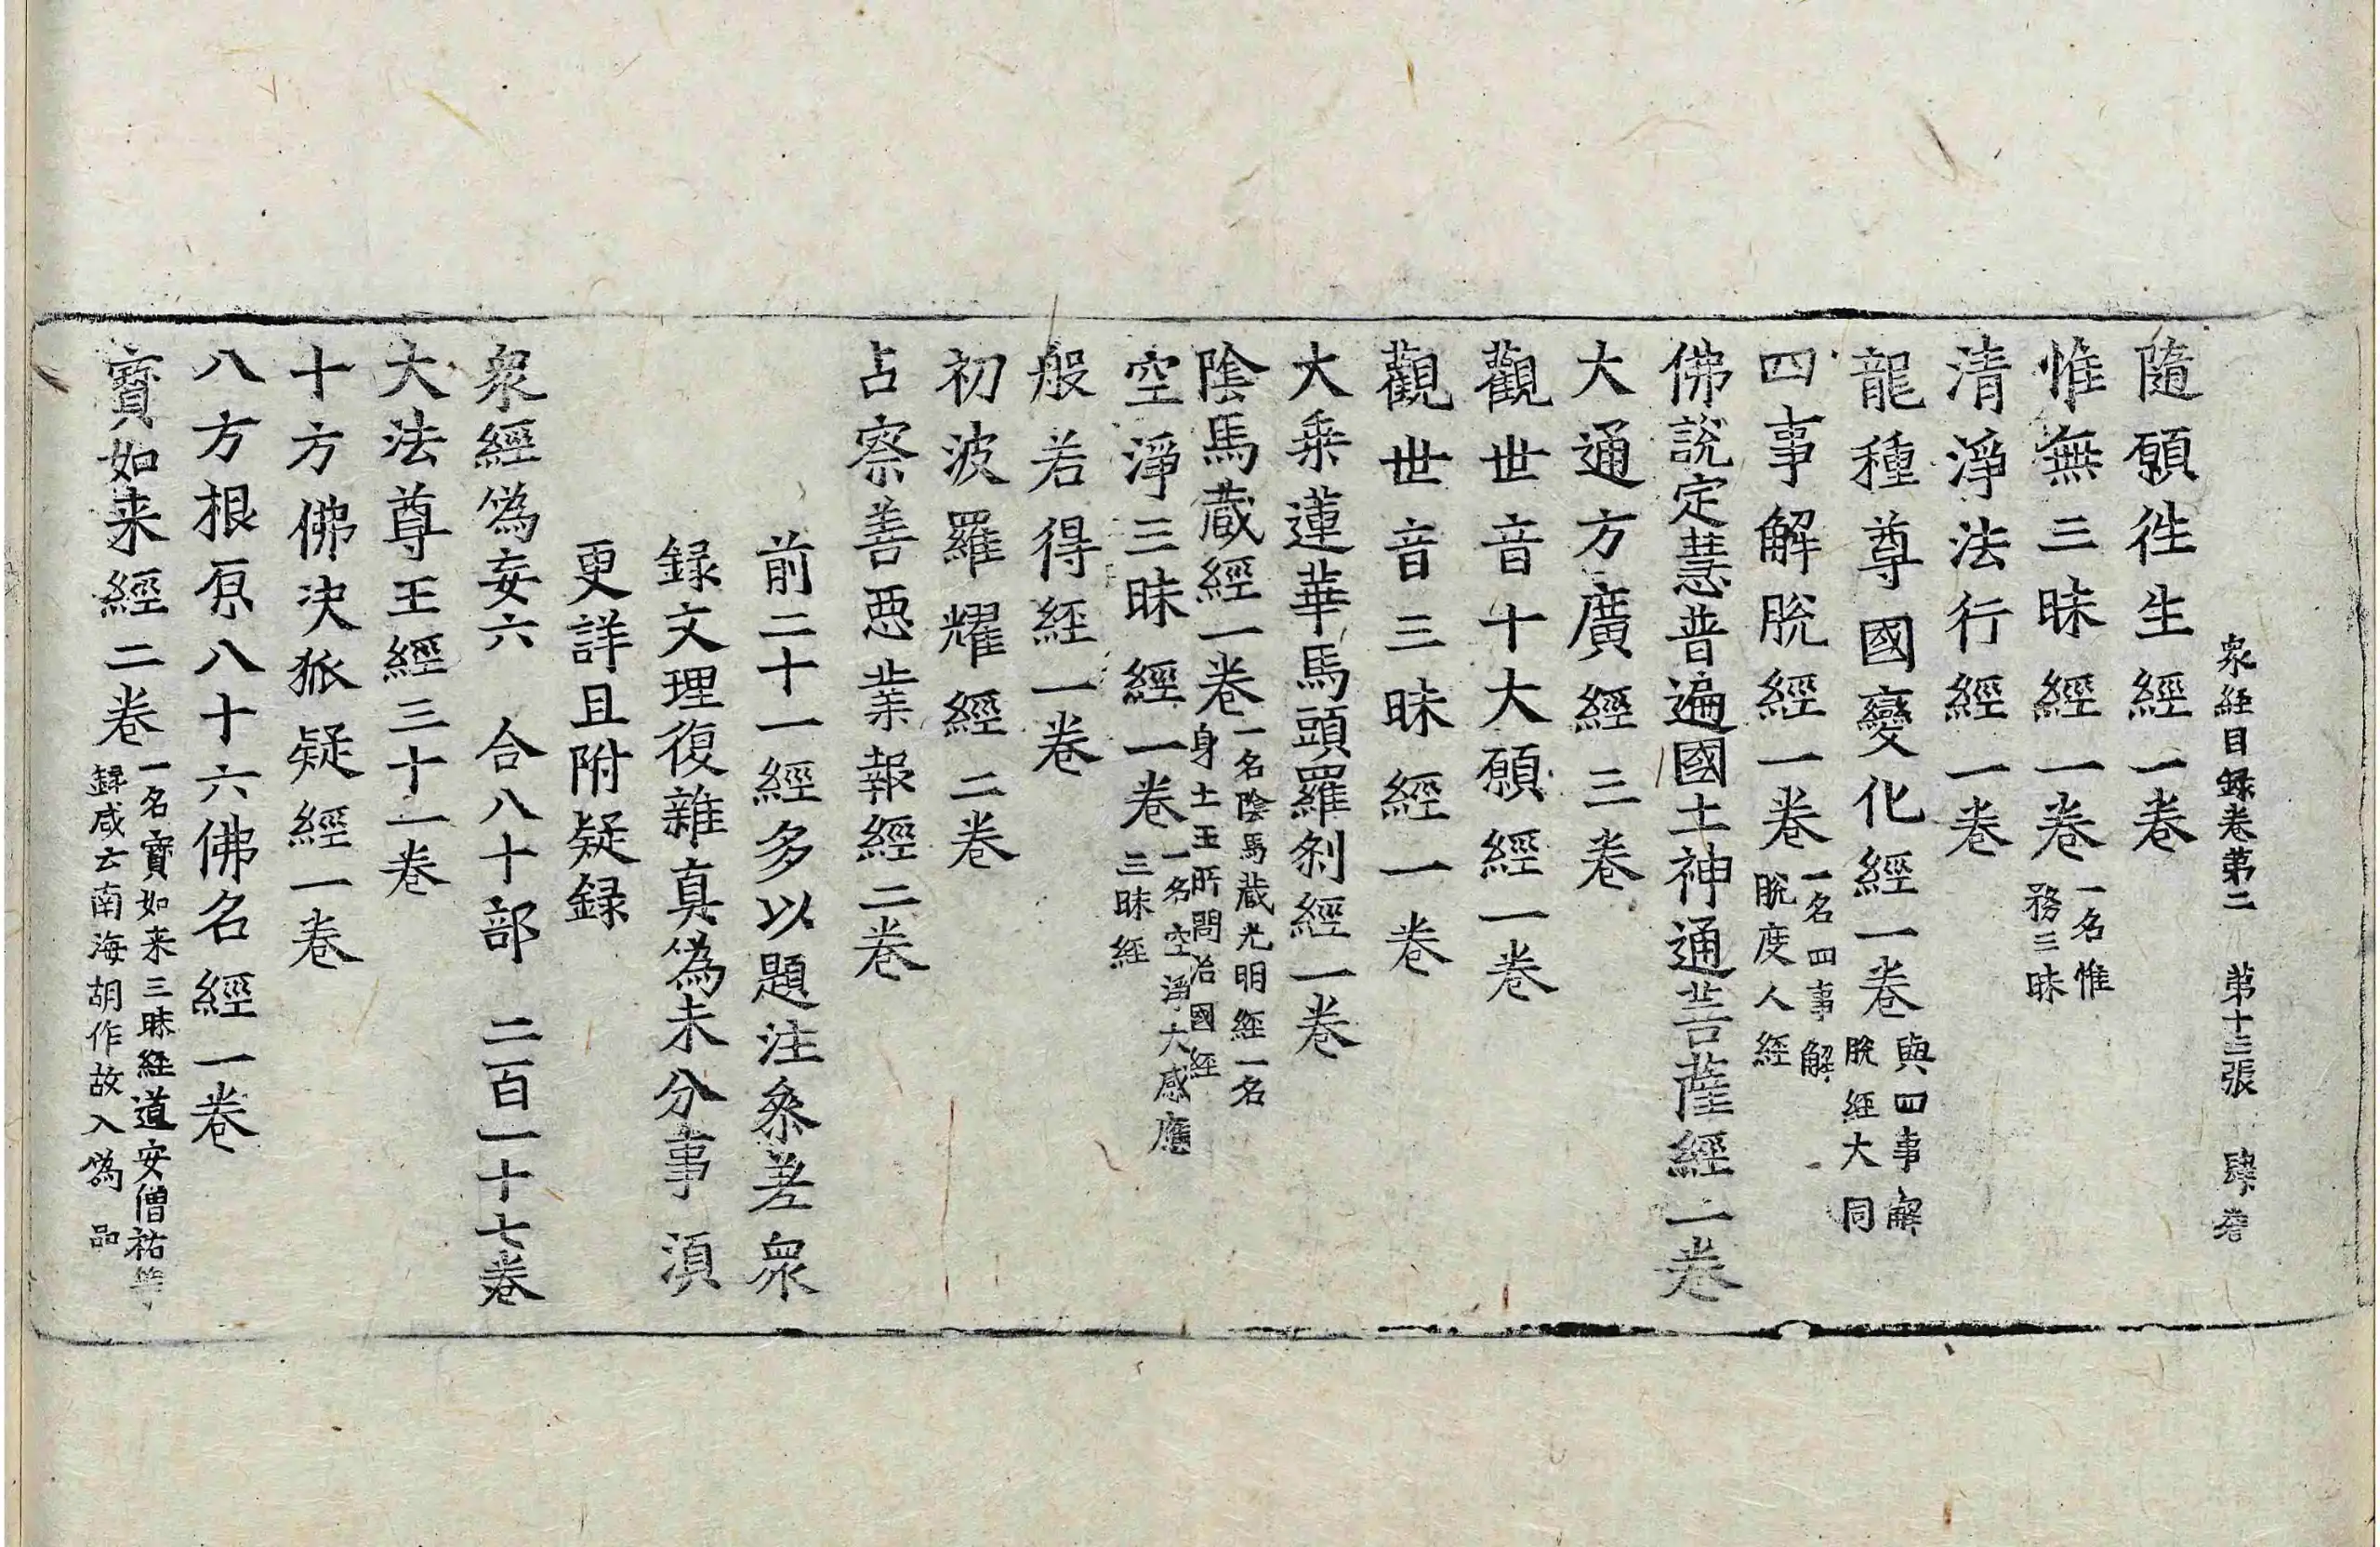 衆経目録卷第二 第十三張 肆
隨願徃生經一卷
惟無三昧經一卷一名惟務三昧
清淨法行經一卷
龍種尊國變化經一卷與四事解脫經大同
四事解脫經一卷一名四事解脫度人經
佛說定慧普遍國土神通菩薩經一卷
大通方廣經三卷
觀世音十大願經一卷
觀世音三昧經一卷
大乗蓮華馬頭羅剎經一卷
陰馬蔵經一卷一名陰馬蔵光明經一名身土王所問治國經
空淨三昧經一卷一名空淨大感應三昧経
般若得經一卷
初波羅耀經二卷
占察善惡業報經二卷
前二十一經多以題注叅差衆
録文理復雜真偽未分事湏
更詳且附疑録
衆經偽妄六 合八十部 二百一十七卷
大法尊王經三十一卷
十方佛决狐疑經一卷
八方根原八十六佛名經一卷
寶如来經二卷一名寶如来三昧経道安僧祐等録咸云南海胡作故入偽品